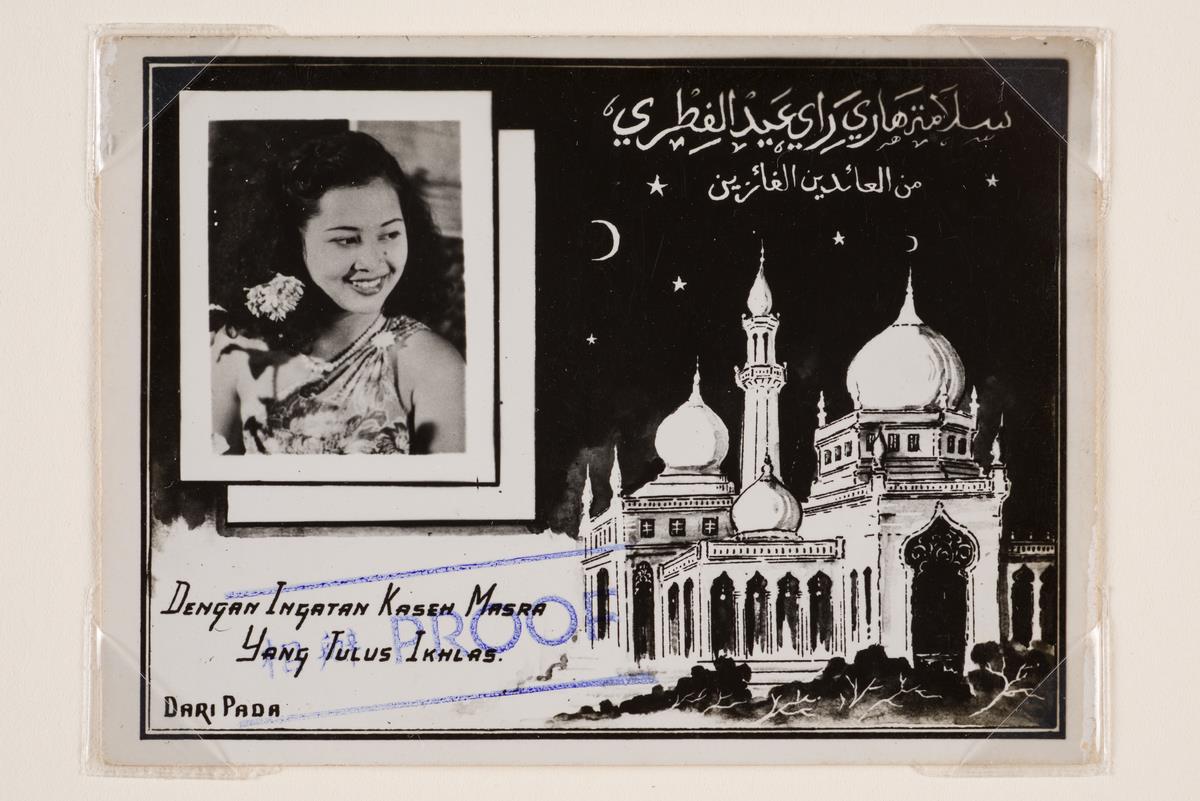 سلامت هاري راي عيدالفطري
من العائدين الفائزين
DENGAN INGATAN KASEH MASRA
YANG TULUS IKHLAS.
DARI PADA
PROOF